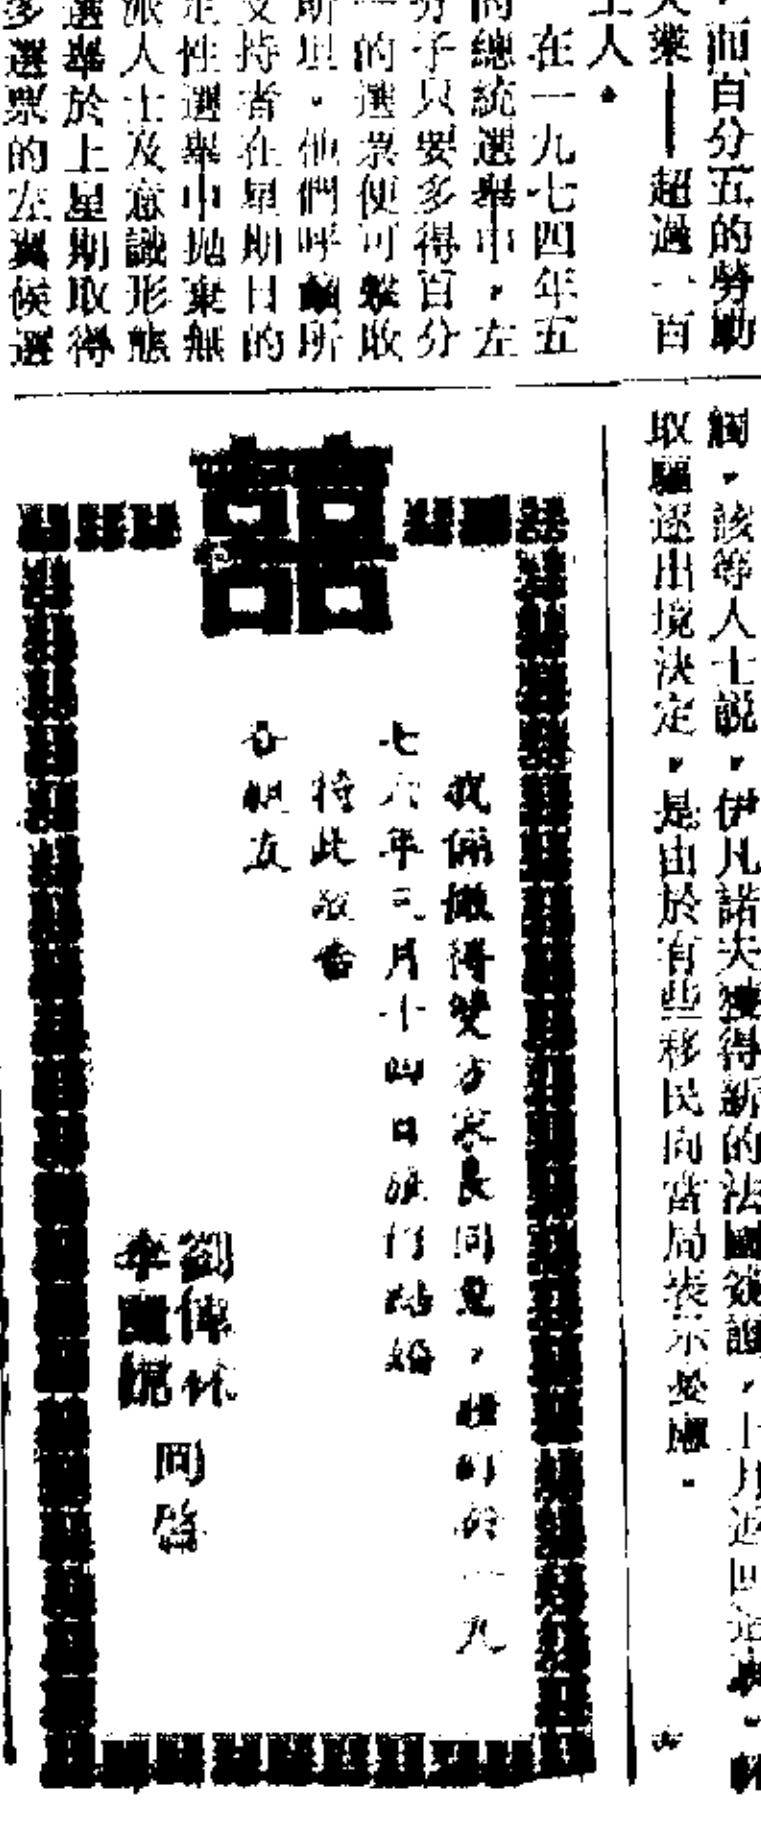 ，而百分五的勞動
大業——超過一百
工人。
在一九七四年五
的總統選舉中，左
分子只要多得百分
一的選票便可擊敗
斯坦。他們呼籲所
支持者在星期日的
定性選舉中拋棄無
派人士及意識形態
選舉於上星期取得
多選票的左翼候選
觸。該等人士說，伊凡諾夫獲得新的法國簽證，上月返回
取驅逐出境決定，是由於有些移民向當局表示憂慮。
囍
我倆徵得雙方家長同意，謹訂於一九
七六年三月十四日澳門結婚
特此敬告
各親友
劉偉林
李
同啓